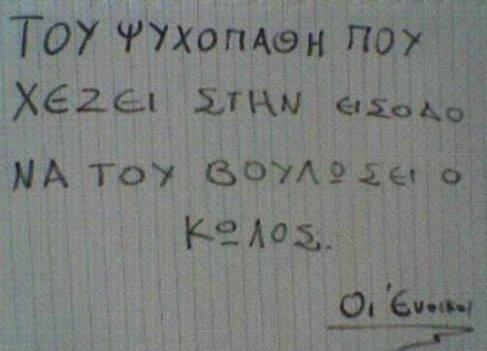 ΤΟΥ ΨΥΧΟΠΑΘΗ ΠΟΥ
ΧΕΖΕΙ ΣΤΗΝ ΕΙΣΟΔΟ
ΝΑ ΤΟΥ ΒΟΥΛΩΣΕΙ Ο
ΚΩΛΟΣ.
Οι Ένοικοι